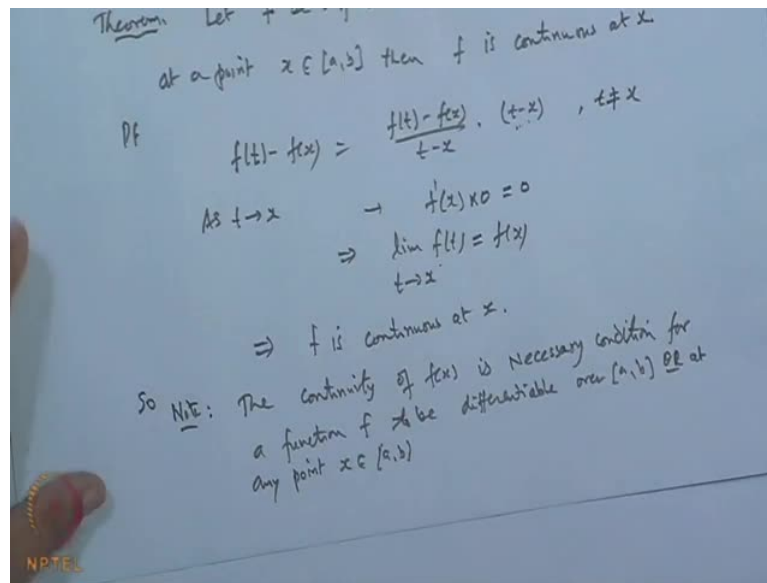 Theorem. Let f
at a point x ∈ [a,b] then f is continuous at x.
Pf
f(t)- f(x) = f(t) - f(x) / t-x . (t-x) , t≠x
As t→x → f'(x) x 0 = 0
⇒ lim f(t) = f(x)
t→x
⇒ f is continuous at x.
So Note: The continuity of f(x) is Necessary condition for
a function f to be differentiable over [a,b] OR at
any point x ∈ [a,b]
NPTEL